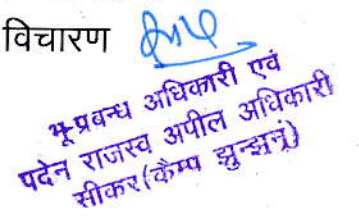 विचारण
भू-प्रबन्ध अधिकारी एवं
पदेन राजस्व अपील अधिकारी
सीकर(कैम्प झुन्झुनूं)